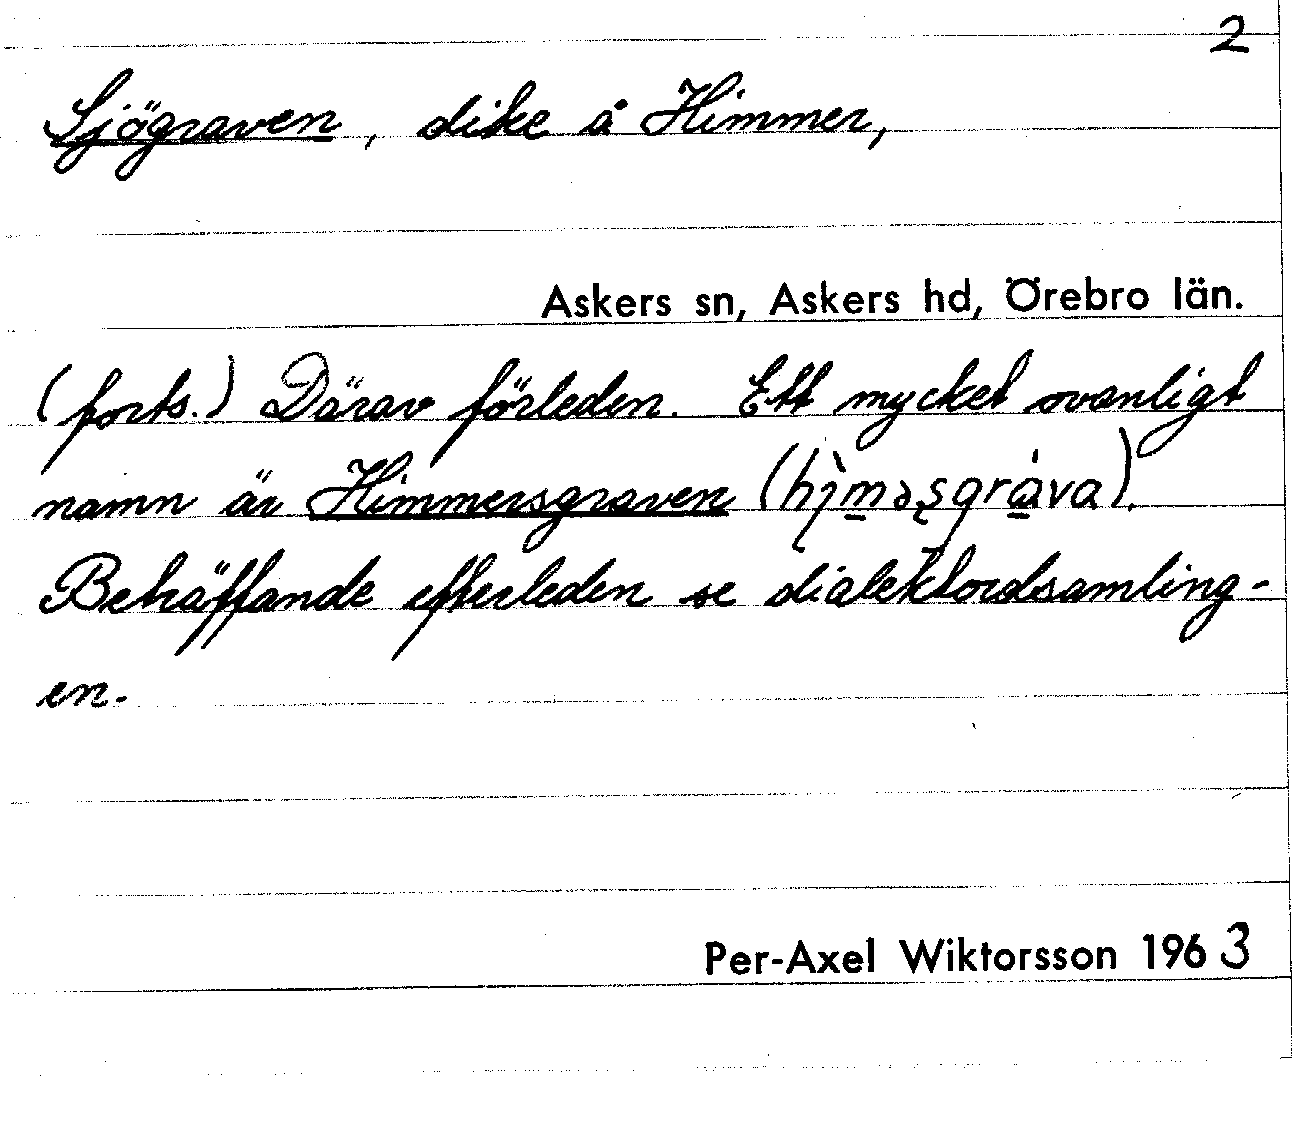 2
Sjögraven, dike å Himmer,
Askers sn, Askers hd, Örebro län.
(forts.) Därav förleden. Ett mycket ovanligt
namn är Himmersgraven (hìməşgráva).
Beträffande efterleden se dialektordsamling-
en.
Per-Axel Wiktorsson 1963